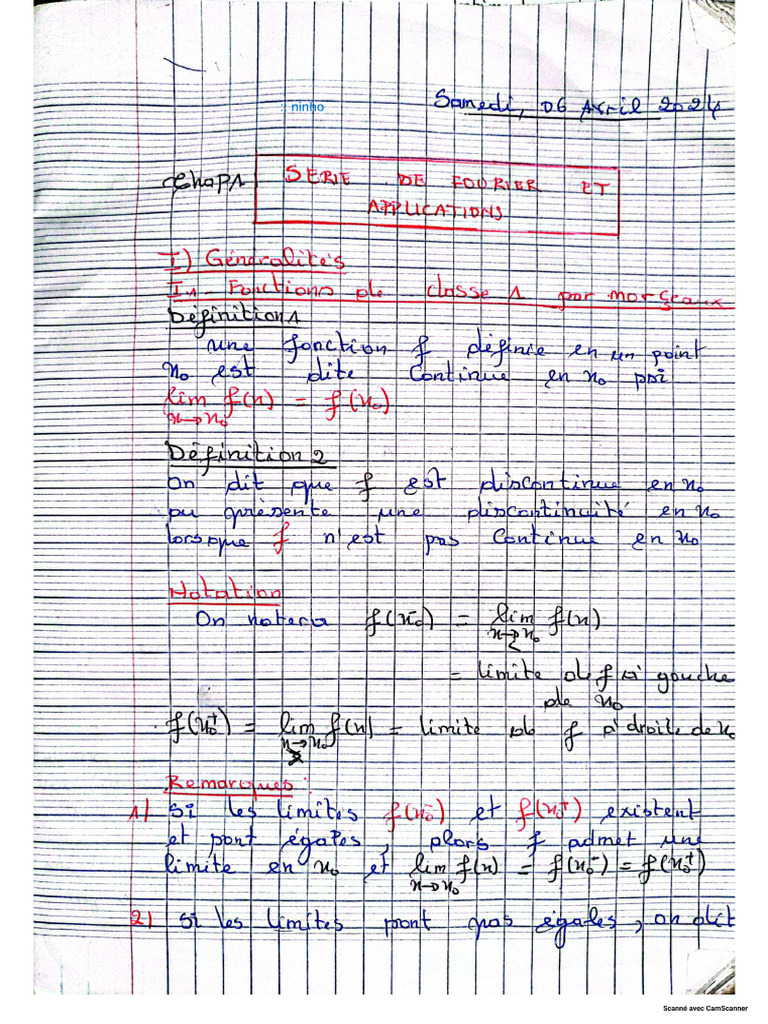 Samedi, 06 Avril 2024
ninho
Chap1 SERIE DE FOURIER ET
APPLICATIONS
I) Généralités
I.1- Fonctions de classe 1 par morçeaux
Définition 1
une fonction f définie en un point
x₀ est dite continue en x₀ si
lim f(x) = f(x₀)
x→x₀
Définition 2
On dit que f est discontinue en x₀
ou présente une discontinuité en x₀
lorsque f n'est pas continue en x₀
Notation
On notera f(x₀⁻) = lim f(x)
x→x₀
<
= limite de f à gauche
de x₀
f(x₀⁺) = lim f(x) = limite de f à droite de x₀
x→x₀
>
Remarques :
1) si les limites f(x₀⁻) et f(x₀⁺) existent
et sont égales, alors f admet une
limite en x₀ et lim f(x) = f(x₀⁻) = f(x₀⁺)
x→x₀
2) si les limites sont pas égales, on dit
Scanné avec CamScanner